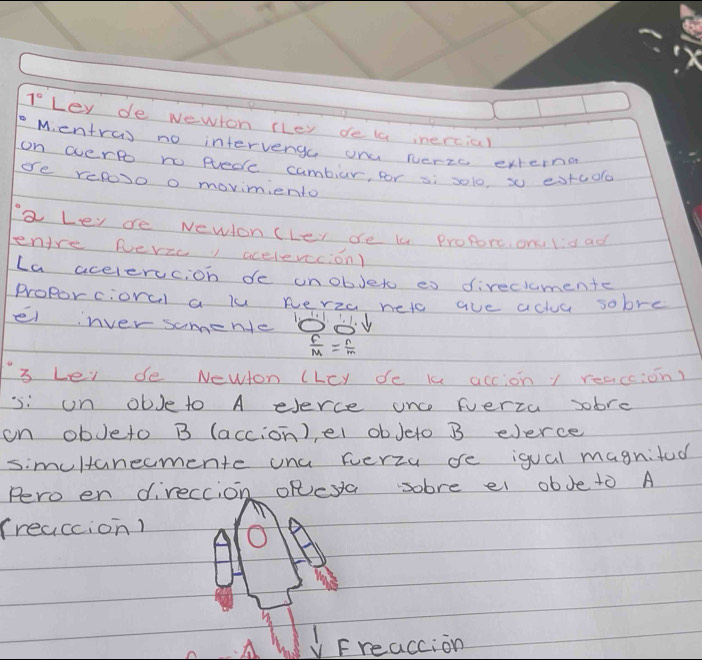 1° Ley de Newton (Ley de la inercia)
• Mientras no intervenga una fuerza externa
un cuerpo no puede cambiar, por si solo, su estado
de reposo o movimiento
°2 Ley de Newton (Ley de la Proporcionalidad
entre fuerza y aceleracción)
La aceleración de un objeto es directamente
proporcional a la fuerza neta que actua sobre
él inversamente
F/M = F/m
°3 Ley de Newton (Ley de la acción y reacción)
si un objeto A ejerce una fuerza sobre
un objeto B (acción), el objeto B ejerce
simultaneamente una fuerza de igual magnitud
Pero en dirección opuesta sobre el objeto A
(reaccion)
F reacción